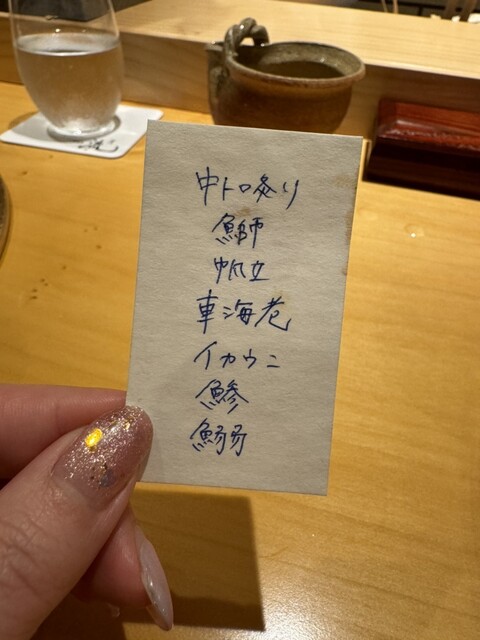 中トロ炙り
鰤
帆立
車海老
イカウニ
鯵
鰯